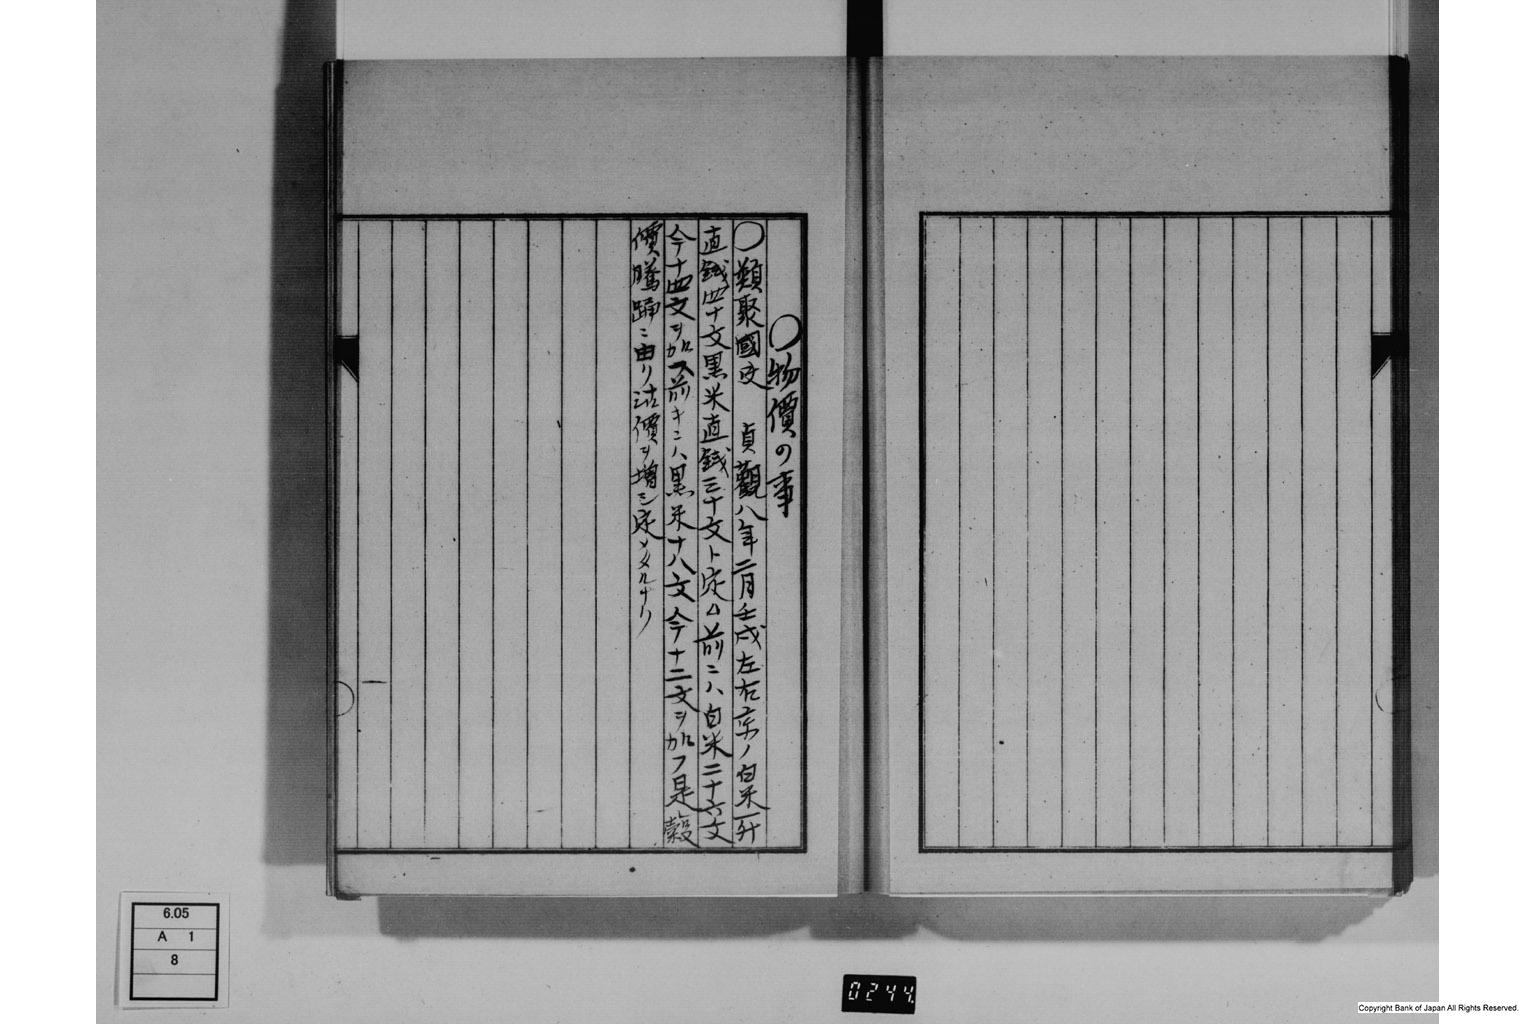 〇物價の事
〇類聚國史　貞觀八年二月壬戌左右京ノ白米一升
直錢四十文黒米直錢三十文ト定ム前ニハ白米二十六文
今十四文ヲ加フ前キニハ黒米十八文今十二文ヲ加フ是穀
價騰踊ニ由リ沽價ヲ増シ定メタルナリ
6.05
A 1
8
0244
Copyright Bank of Japan All Rights Reserved.